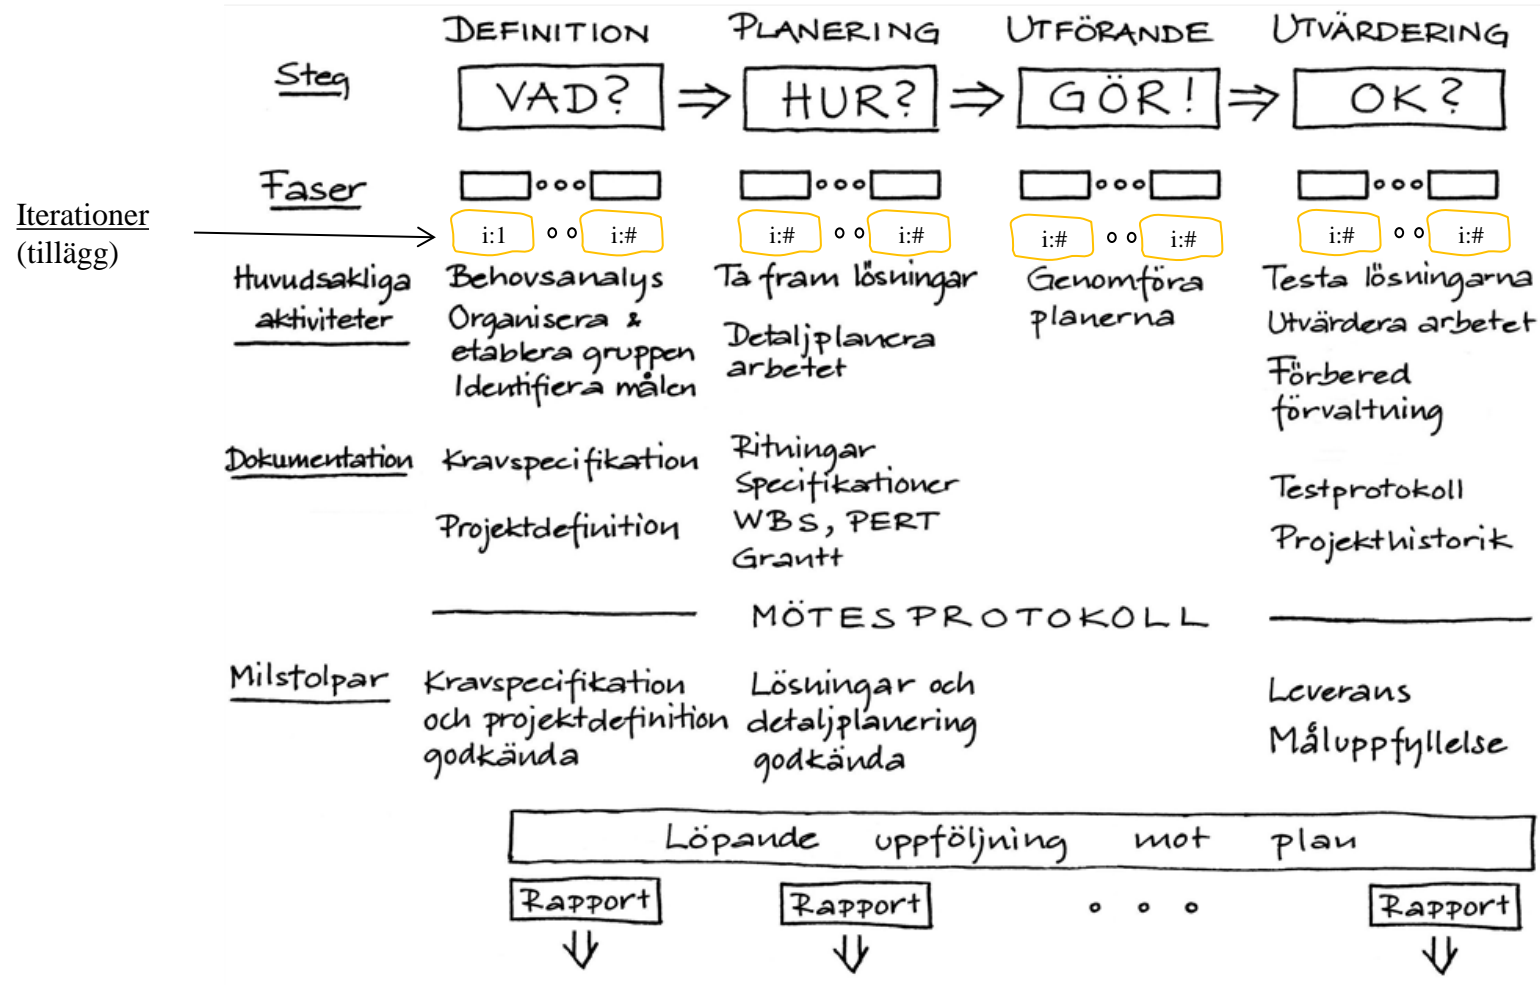 DEFINITION PLANERING UTFÖRANDE UTVÄRDERING
Steg VAD? ⇒ HUR? ⇒ GÖR! ⇒ OK?
Faser
Iterationer
(tillägg)
i:1 i:# i:# i:# i:# i:# i:# i:#
Huvudsakliga
aktiviteter
Behovsanalys
Organisera &
etablera gruppen
Identifiera målen
Ta fram lösningar
Detaljplanera
arbetet
Genomföra
planerna
Testa lösningarna
Utvärdera arbetet
Förbered
förvaltning
Dokumentation
Kravspecifikation
Projektdefinition
Ritningar
Specifikationer
WBS, PERT
Grantt
Testprotokoll
Projekthistorik
MÖTESPROTOKOLL
Milstolpar
Kravspecifikation
och projektdefinition
godkända
Lösningar och
detaljplanering
godkända
Leverans
Måluppfyllelse
Löpande uppföljning mot plan
Rapport Rapport Rapport